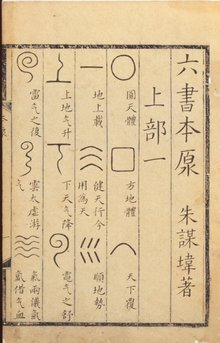 六書本原 朱謀㙔著
上部一
圜天體
方地體
天下覆
地上載
健天行今
用為天
順地勢
上地气升
下天气降
電气之舒
雷气之復
雲太虛游
气